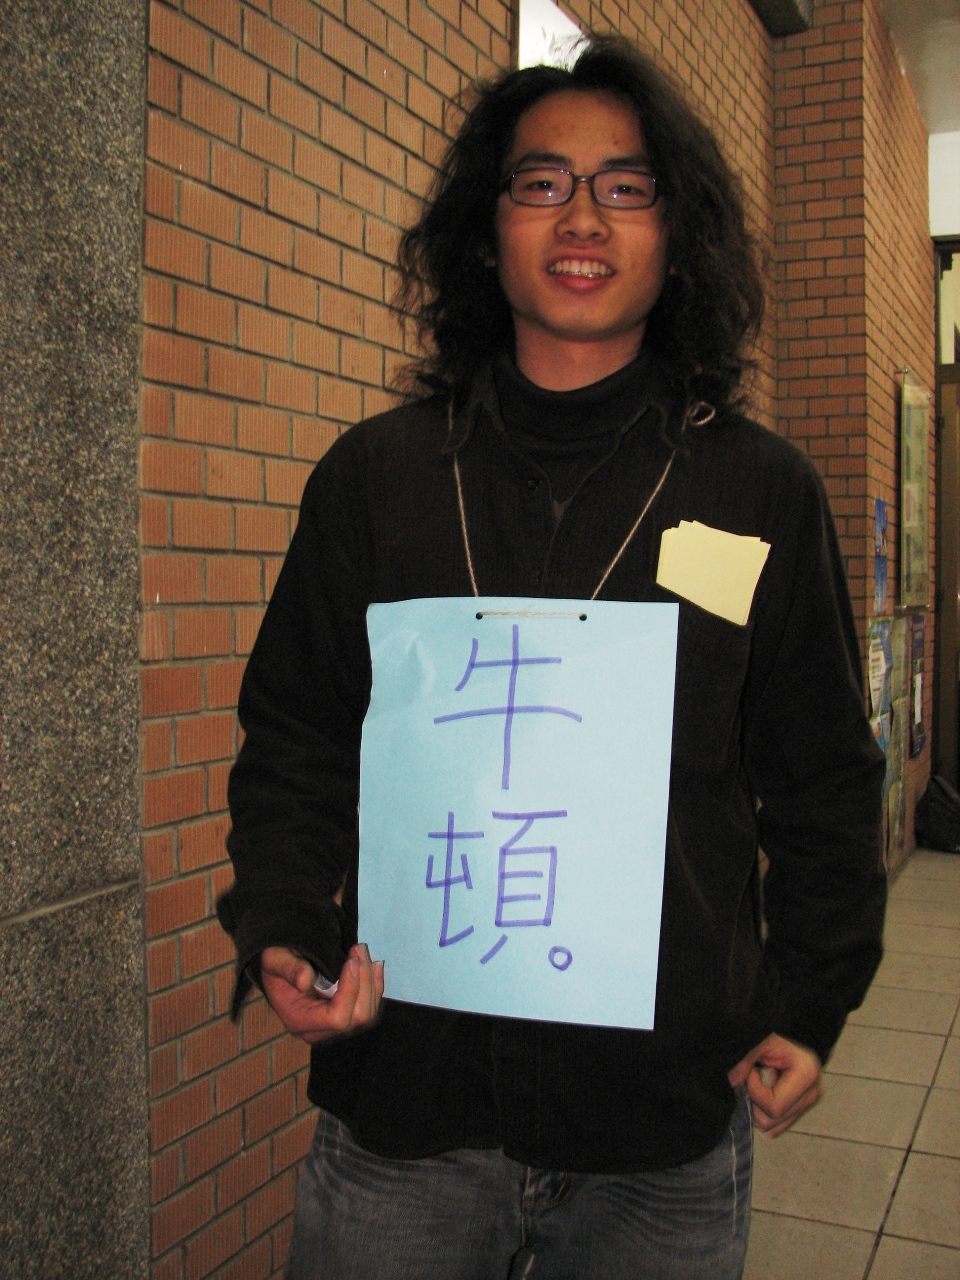 牛
頓。